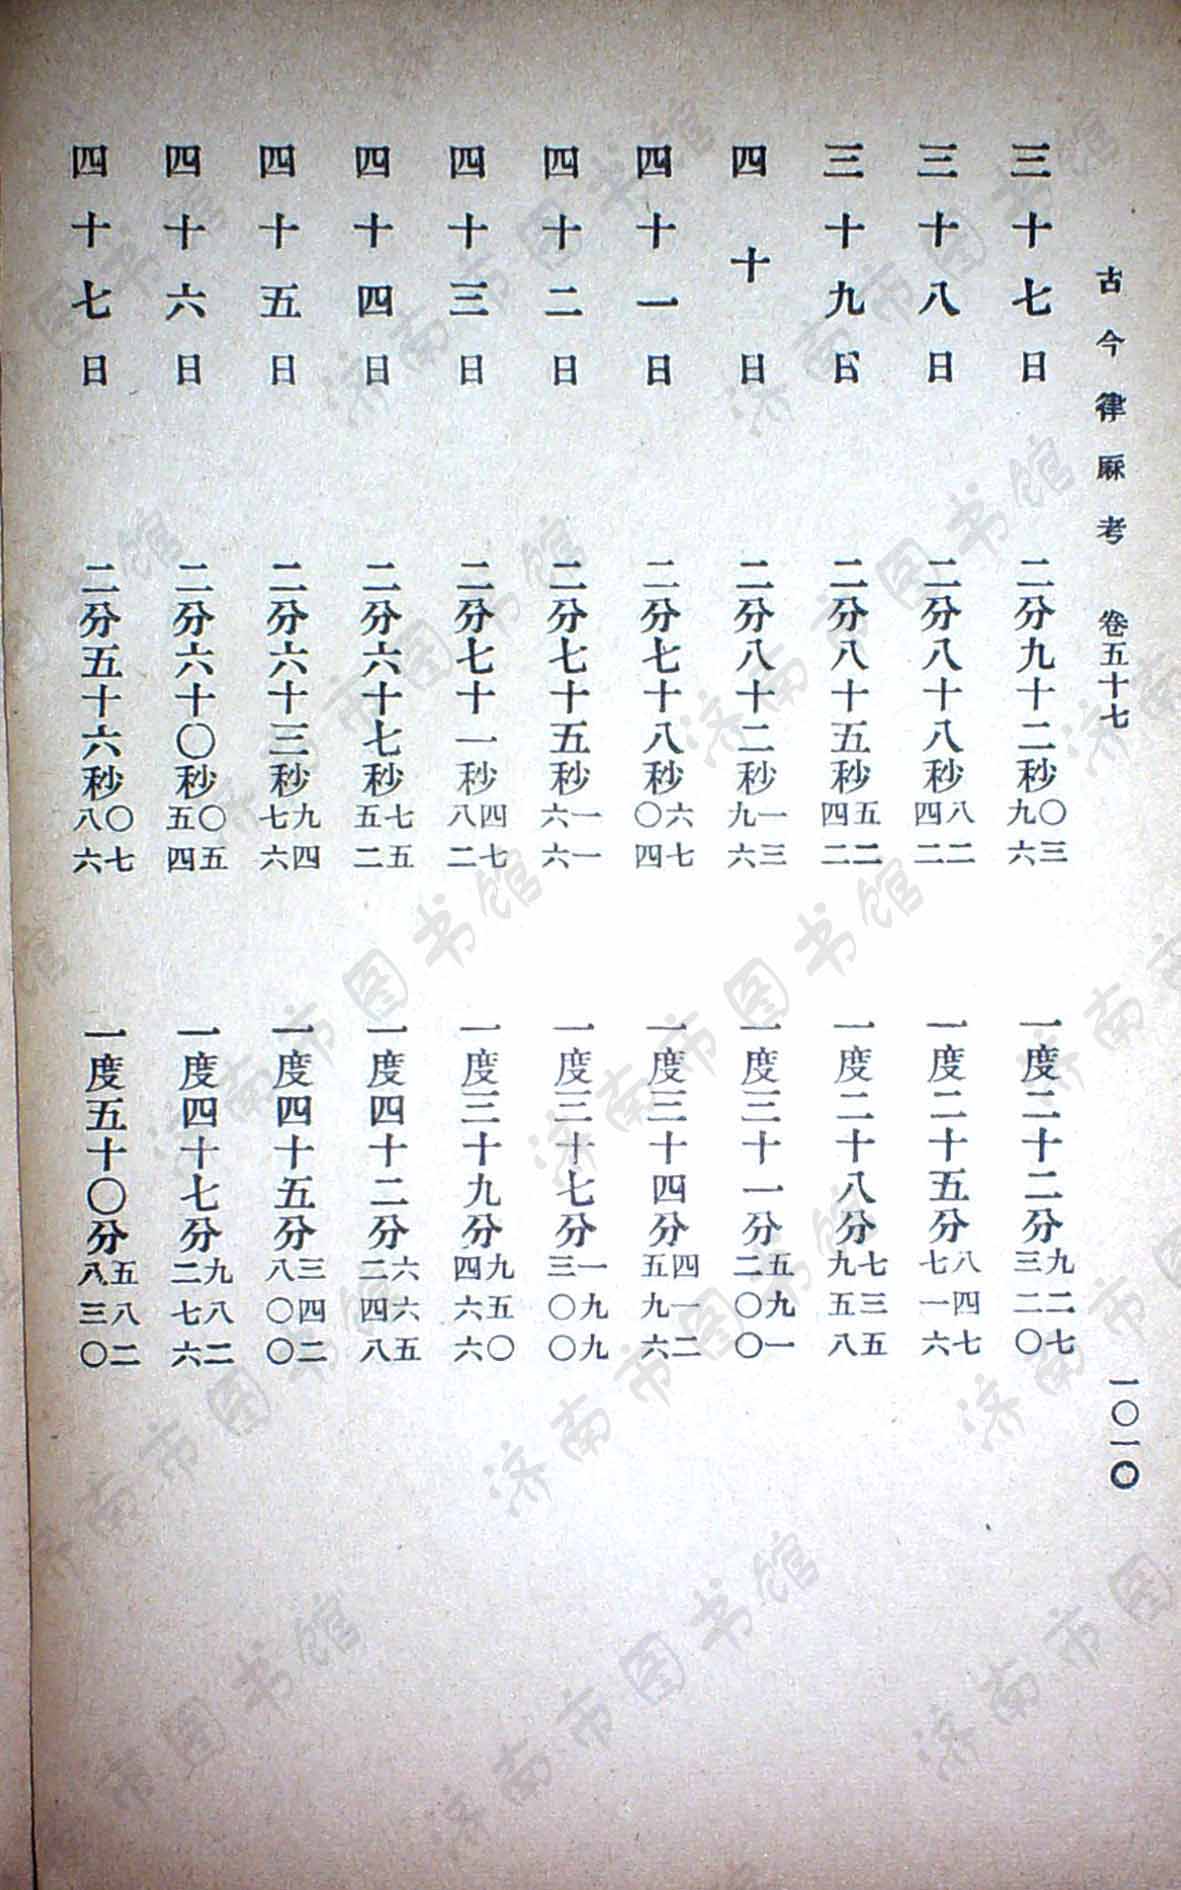 古今律厤考 卷五十七 一〇一〇
三十七日 二分九十二秒〇三九六 一度二十二分九二七三二〇
三十八日 二分八十八秒八二四二 一度二十五分八四七七一六
三十九日 二分八十五秒五二四二 一度二十八分七三五九五八
四十日 二分八十二秒一三九六 一度三十一分五九一二〇〇
四十一日 二分七十八秒六七〇四 一度三十四分四一二五九六
四十二日 二分七十五秒一一六六 一度三十七分一九九三〇〇
四十三日 二分七十一秒四七八二 一度三十九分九五〇四六六
四十四日 二分六十七秒七五五二 一度四十二分六六五二四八
四十五日 二分六十三秒九四七六 一度四十五分三四二八〇〇
四十六日 二分六十〇秒〇五五四 一度四十七分九八二二七六
四十七日 二分五十六秒〇七八六 一度五十〇分五八二八三〇
济南市图书馆